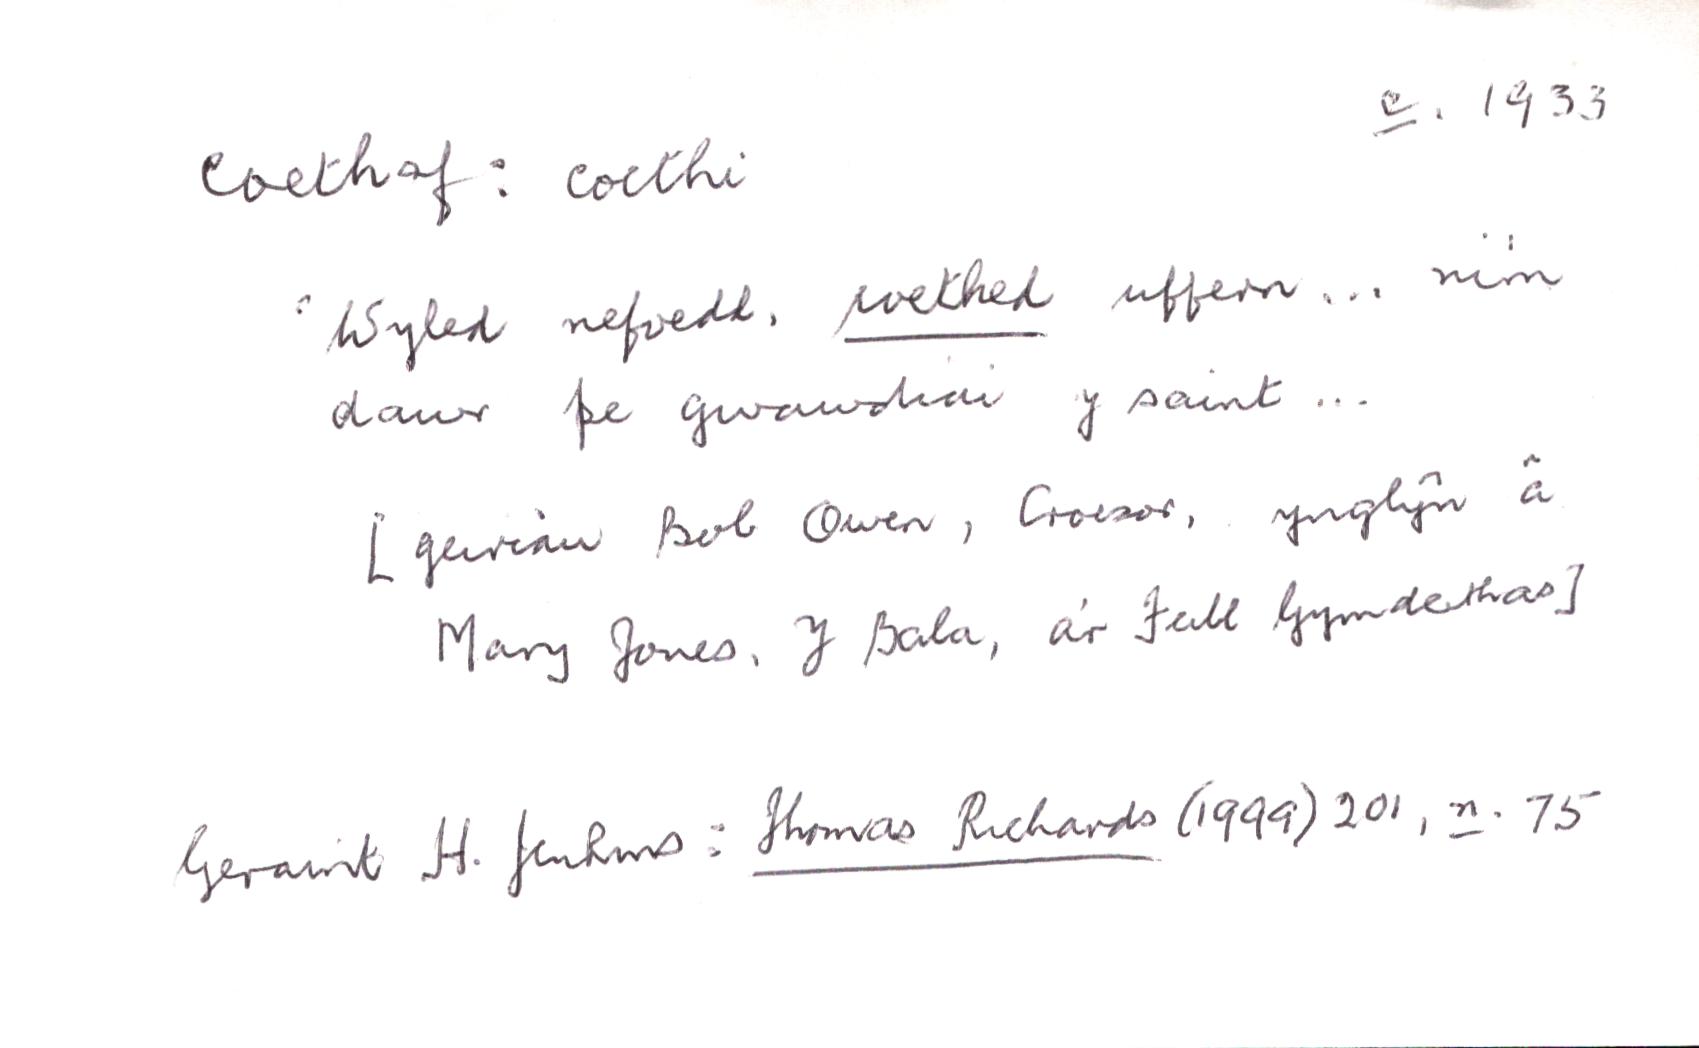 c. 1933
coethaf: coethi
'Wyled nefoedd, coethed uffern ... ni'm
dawr pe gwawdiai y saint ...
[geiriau Bob Owen, Croesor, ynglŷn â
Mary Jones, Y Bala, a'r Feibl Gymdeithas]
Geraint H. Jenkins: Thomas Richards (1999) 201, n. 75